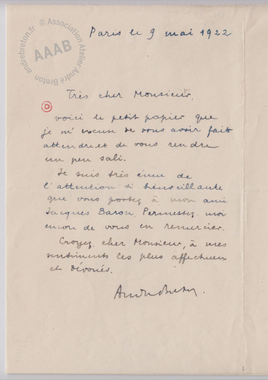 Paris le 9 mai 1922
andrebreton.fr © Association Atelier André Breton
AAAB
Très cher Monsieur,
voici le petit papier que
je m'excuse de vous avoir fait
attendre et de vous rendre
un peu sali.
Je suis très ému de
l'attention si bienveillante
que vous portez à mon ami
Jacques Baron. Permettez-moi
encore de vous en remercier.
Croyez, cher Monsieur, à mes
sentiments les plus affectueux
et dévoués.
André Breton